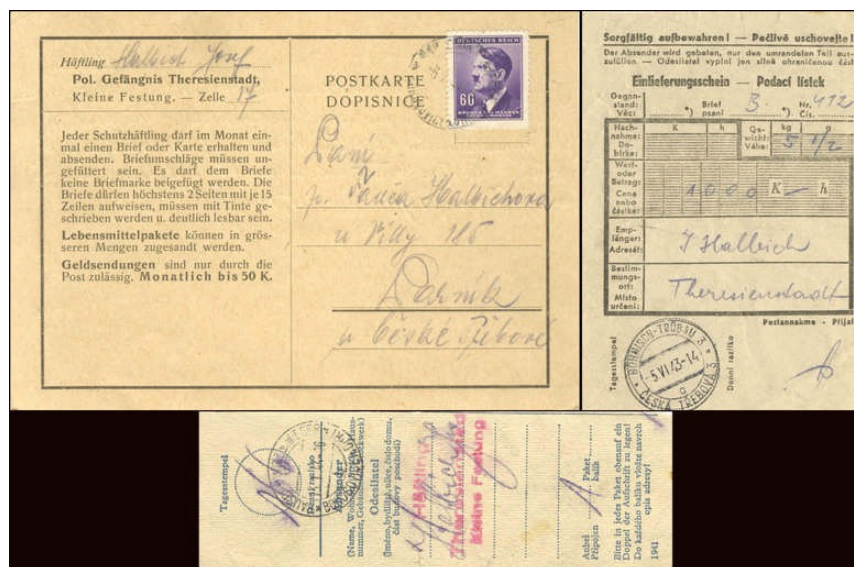 Häftling Halbich Josef
Pol. Gefängnis Theresienstadt,
Kleine Festung. — Zelle 17
Jeder Schutzhäftling darf im Monat ein-
mal einen Brief oder Karte erhalten und
absenden. Briefumschläge müssen un-
gefüttert sein. Es darf dem Briefe
keine Briefmarke beigefügt werden. Die
Briefe dürfen höchstens 2 Seiten mit je 15
Zeilen aufweisen, müssen mit Tinte ge-
schrieben werden u. deutlich lesbar sein.
Lebensmittelpakete können in grös-
seren Mengen zugesandt werden.
Geldsendungen sind nur durch die
Post zulässig. Monatlich bis 50 K.
POSTKARTE
DOPISNICE
DEUTSCHES REICH
60
BÖHMEN UND MÄHREN
Paní
p. Halbichova
u Villy 186
Parník
u České Třebové
Sorgfältig aufbewahren! — Pečlivě uschovejte!
Der Absender wird gebeten, nur den umrandeten Teil aus-
zufüllen — Odesílatel vyplní jen silně ohraničenou část
Einlieferungsschein — Podací lístek
Gegen-
stand:
Věc:
Brief
psaní
B.
Nr.
Čís.
412
Nach-
nahme:
Do-
birka:
K h
Ge-
wicht:
Váha:
kg g
5 1/2
Wert-
oder
Betrag:
Cena
nebo
částka:
1000 K — h
Emp-
fänger:
Adresát:
J Halbich
Bestim-
mungs-
ort:
Místo
určení:
Theresienstadt
Postannahme - Přijal
Tagesstempel
Denní razítko
BÖHMISCH-TRÜBAU 3
-5.VI.43-14
ČESKÁ TŘEBOVÁ 3
Tagesstempel
Denní razítko
Absender
Odesílatel
(Jméno, bydliště, ulice, číslo domu,
část budovy, poschodí)
Häftling
Theresienstadt
Kleine Festung
Anbei
Připojen
1
Paket
balík
Bitte in jedes Paket obenauf ein
Doppel der Aufschrift zu legen!
Do každého balíku vložte navrch
opis adresy!
1941